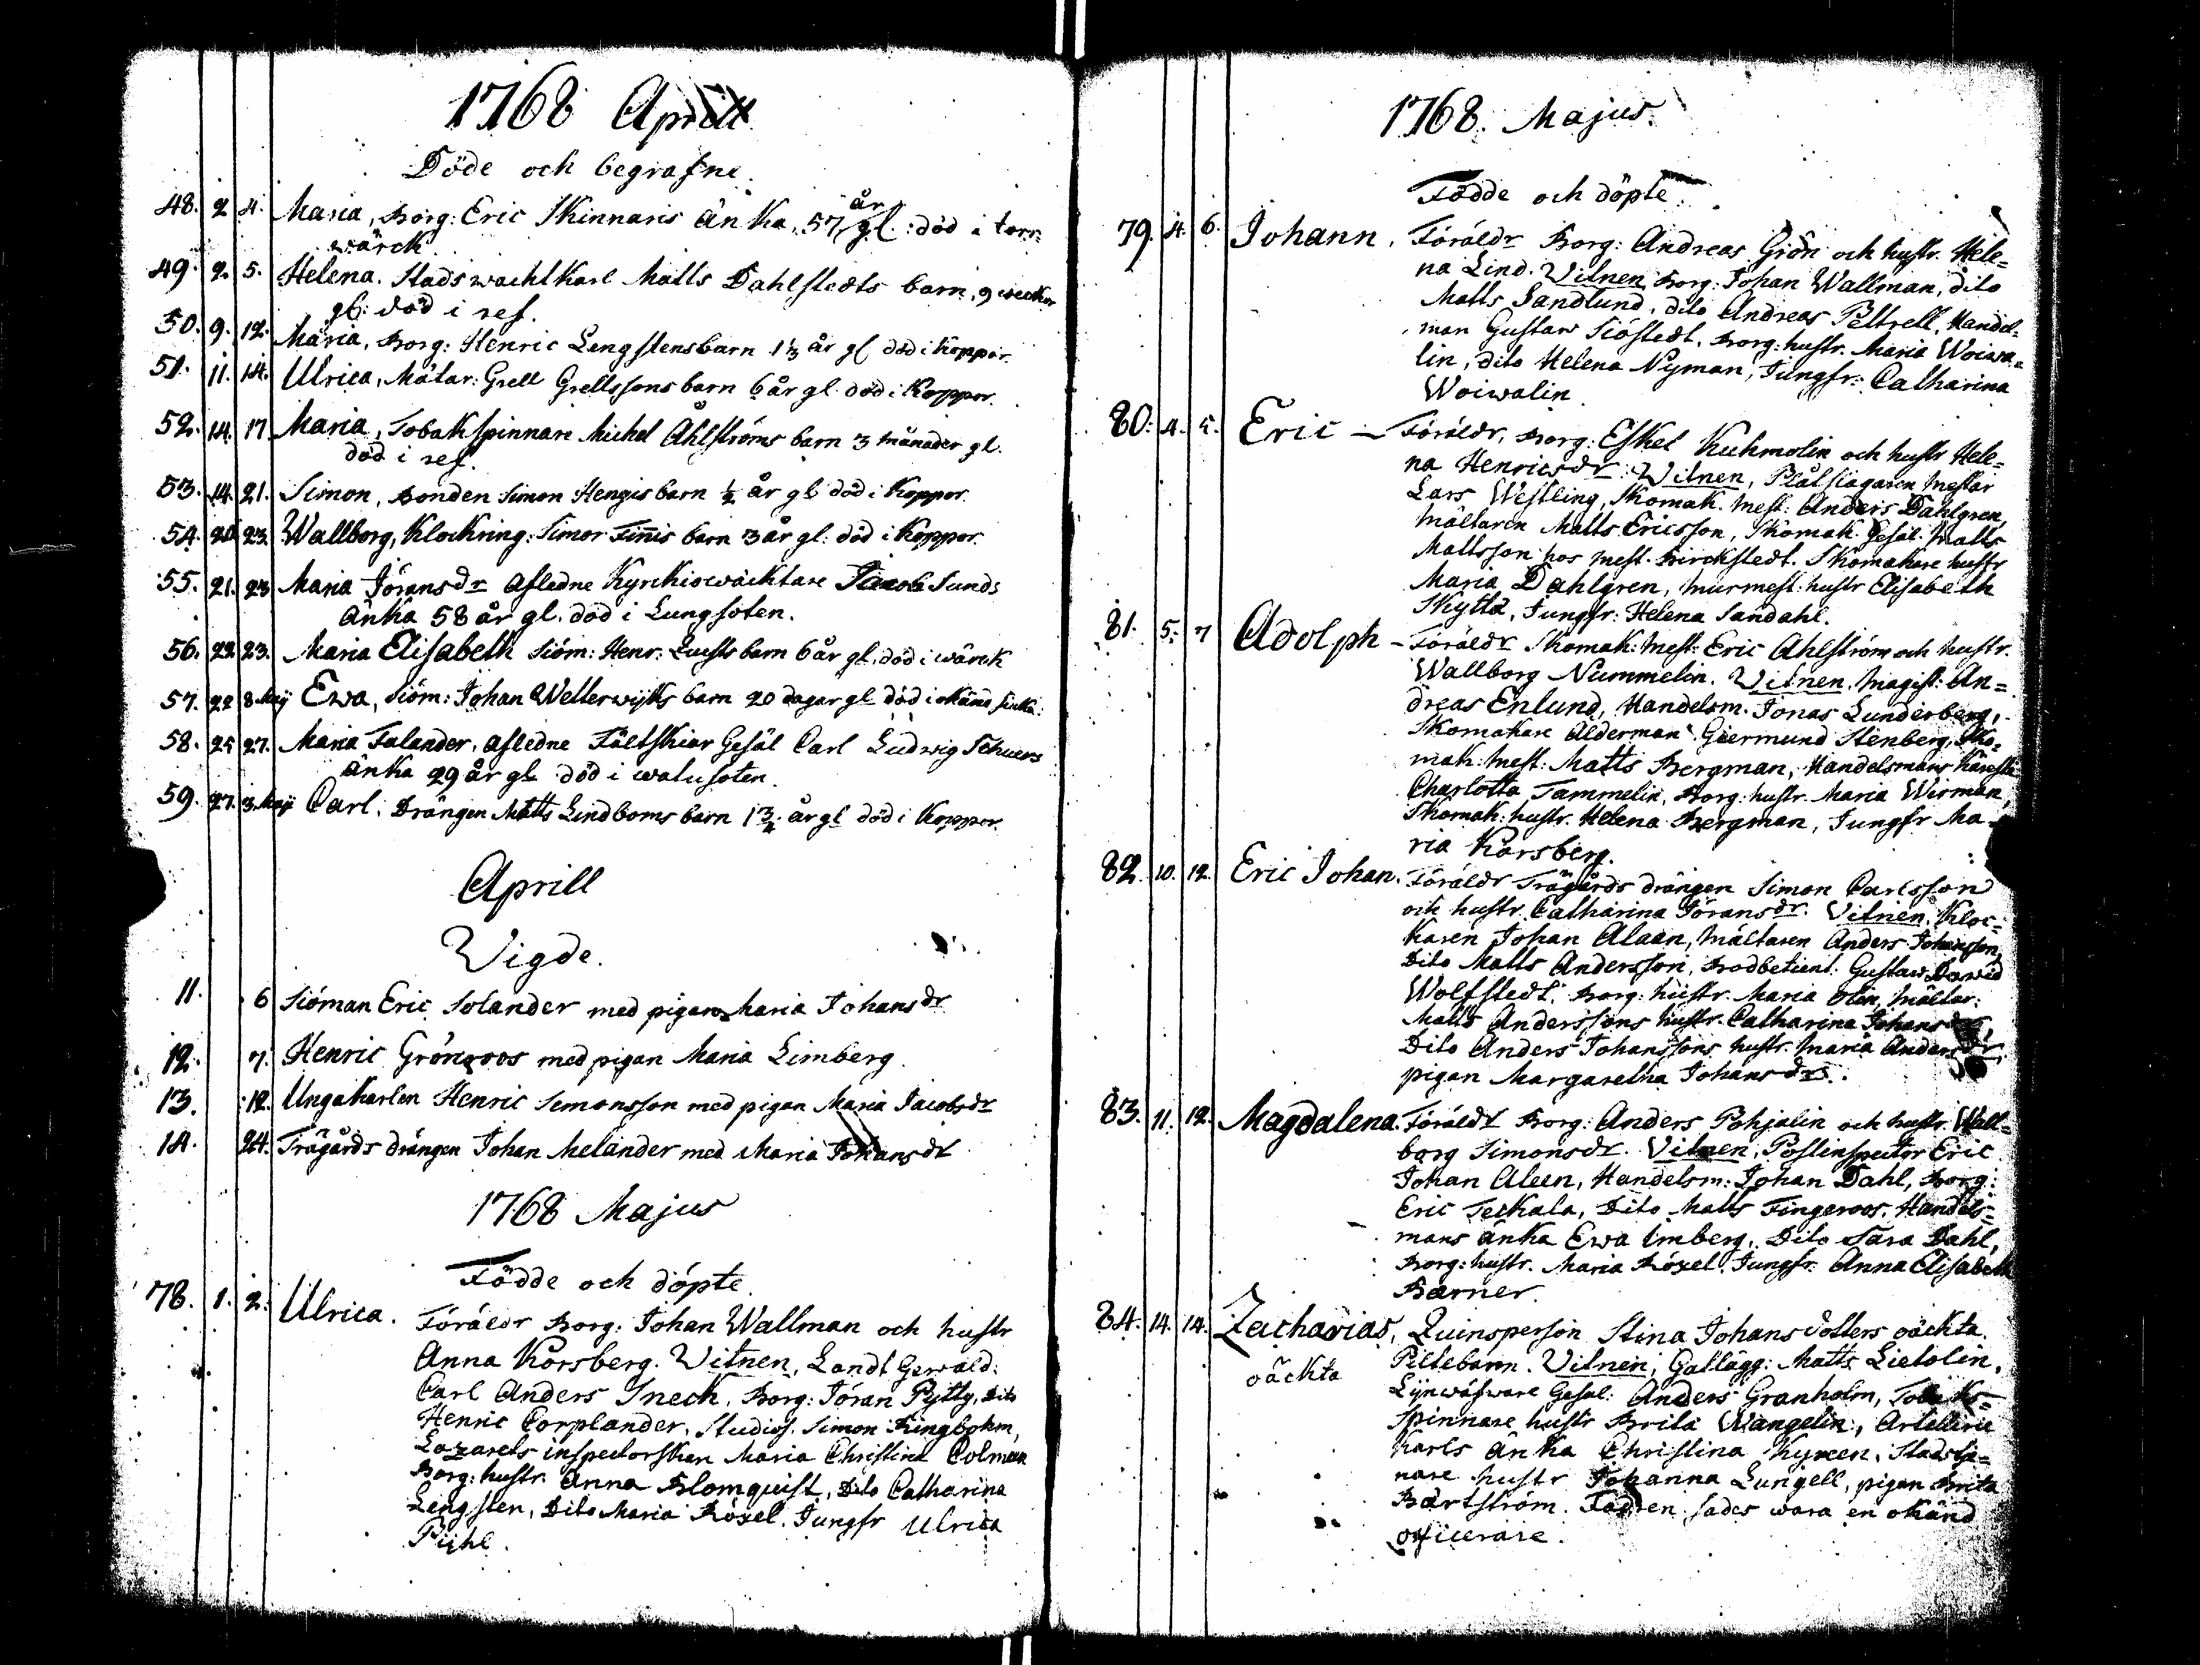 1768 Aprill
Döde och begrafne.
48. 2 4. Maria, Borg: Eric Skinnaris änka, 57 år gl. död i torr
wärck
49. 2. 5. Helena. Stads wachtkarl Matts Dahlstedts barn, 9 weckor
gl: död i ref.
50. 9. 12. Maria, Borg: Henric Lengstens barn 1 1/3 år gl död i Koppor.
51. 11. 14. Ulrica, Mätar: Grell Grellssons barn 6 år gl. död i Koppor.
52. 14. 17 Maria, Tobakspinnare Michel Åhlströms barn 3 månader gl.
död i ref.
53. 14. 21. Simon, Bonden Simon Hengis barn 1/2 år gl död i Koppor.
54. 20. 23. Wallborg, Klockring: Simon Finnis barn 3 år gl: död i Koppor.
55. 21. 23 Maria Jöransdr afledne Kyrkiowäcktare Jacob Sunds
änka 58 år gl. död i Lungsoten.
56. 22 23. Maria Elisabeth Siöm: Henr: Lusts barn 6 år gl. död i wärck
57. 22 8 Maij Ewa, Siöm: Johan Wetterwijks barn 20 dagar gl död i okänd siuka.
58. 25 27. Maria Falander, afledne Fältskiär Gesäl Carl Ludwig Schuers
änka 29 år gl död i watusoten.
59. 27. 3. Maji Carl. Drängen Matts Lindboms barn 1 3/4 år gl död i Koppor.
Aprill
Vigde.
11. 6 Siöman Eric Solander med pigan Maria Johansdr
12. 7. Henric Gröngroos med pigan Maria Limberg
13. 12. Ungakarlen Henric Semonsson med pigan Maria Jacobsdr
14. 24. Trägårds drängen Johan Melander med Maria Johansdr
1768 Majus
Födde och döpte.
78. 1. 2. Ulrica. Föräldr Borg: Johan Wallman och hustr
Anna Korsberg. Vitnen, Landt Gewald:
Carl Anders Sneck, Borg: Jöran Pytty, Dito
Henric Corplander, Studios. Simon Ringbohm,
Lazarets inspectorskan Maria Christina Colmean
Borg: hustr. Anna Blomquist, Dito Catharina
Lengsten, Dito Maria Röxel. Jungfr Ulrica
Pijhl.
1768. Majus.
Födde och döpte.
79. 4. 6. Johann. Föräldr Borg: Andreas Grön och hustr. Hele=
na Lind. Vitnen Borg: Johan Wallman, dito
Matts Sandlund, dito Andreas Peltrell, Handel=
man Gustaw Siöstedt, Borg: hustr. Maria Woiwa=
lin, dito Helena Nyman, Jungfr: Catharina
Woiwalin
80. 4. 5. Eric – Föräldr, Borg: Eskel Kuhmolin och hustr Hele=
na Henricsdr. Witnen, Plåtslagaren Mestar
Lars Westling, Skomak. Mest: Anders Dahlgren,
Mältaren Matts Ericsson, Skomak. Gesäl. Matts
Mattsson hos Mest. Birckstedt. Skomakare hustr
Maria Dahlgren, Murmest: hustr Elisabeth
Skyttä, Jungfr: Helena Sandahl.
81. 5. 7 Adolph – Föräldr Skomak: Mest: Eric Ahlström och hustr.
Wallborg Nummelin. Vitnen, Magist: An=
dreas Enlund, Handelsm. Jonas Lunderberg,
Skomakare Ålderman Giermund Stenberg, Sko=
mak: Mest: Matts Bergman, Handelsmans käresta
Charlotta Tammelin, Borg: hustr. Maria Wirman,
Skomak: hustr. Helena Bergman, Jungfr Ma=
ria Korsberg.
82. 10. 12. Eric Johan. Föräldr Trägårds drängen Simon Carlsson
och hustr. Catharina Jöransdr. Vitnen, Kloc=
karen Johan Alaan, Mältaren Anders Johansson,
Dito Matts Andersson, Bodbetient: Gustaw Dawid
Wolfstedt. Borg: hustr. Maria Olin, Mältar:
Matts Anderssons hustr. Catharina Johansdr,
Dito Anders Johanssons hustr. Maria Andersdr
pigan Margaretha Johansdr.
83. 11. 12. Magdalena. Föräldr Borg: Anders Pohjalin och hustr. Wall=
borg Simonsdr. Vitnen, Postinspector Eric
Johan Aleen, Handelsm: Johan Dahl, Borg:
Eric Teckala, Dito Matts Fingeroos, Handels=
mans änka Ewa Imberg, Dito Sara Dahl,
Borg: hustr. Maria Röxel. Jungfr. Anna Elisabeth
Bærner.
84. 14. 14. Zacharias, Quinsperson Stina Johansdotters oäckta
oäckta Piltebarn. Vitnen, Gallägg: Matts Lietolin,
Lijnwäfware Gesäl: Anders Granholm, Tobaks=
spinnare hustr Brita Wangelin, Artellerie
karls änka Christina Kyreen, Stadstje=
nare hustr Johanna Lungell, pigan Brita
Bartström. Fadren sades wara en okänd
officerare.